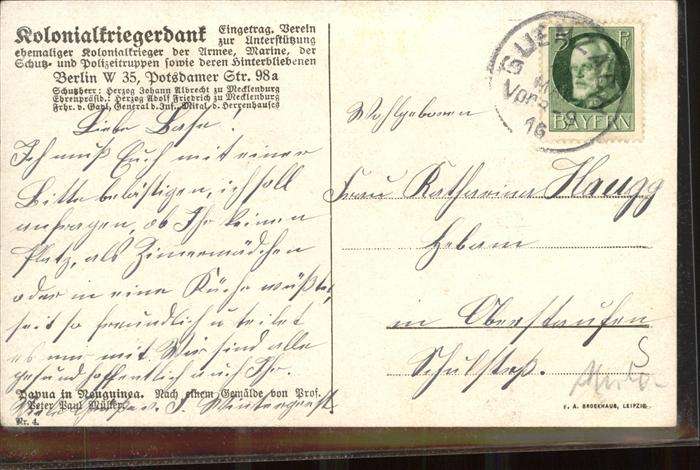 Kolonialkriegerdank Eingetrag. Verein
zur Unterstützung
ehemaliger Kolonialkrieger der Armee, Marine, der
Schutz- und Polizeitruppen sowie deren Hinterbliebenen
Berlin W 35, Potsdamer Str. 98a
Schutzherr: Herzog Johann Albrecht zu Mecklenburg
Ehrenpräsid.: Herzog Adolf Friedrich zu Mecklenburg
Frhr. v. Gayl, General d. Inf., Mitgl. d. Herrenhauses
Liebe Base!
Ich muß Euch mit einer
Bitte belästigen, ich soll
anfragen, ob Ihr keinen
Platz, als Zimmermädchen
oder in eine Küche wüßtet,
seit so freundlich u teilet
es uns mit. Wir sind alle
gesund hoffentlich auch Ihr.
Papua in Neuguinea. Nach einem Gemälde von Prof.
Peter Paul Müller.
Nr. 4.
5 Pf
BAYERN
16
Wohlgeboren
Frau Katharina Haugg
Hebam
in Oberstaufen
Schulstraß.
F. A. BROCKHAUS, LEIPZIG